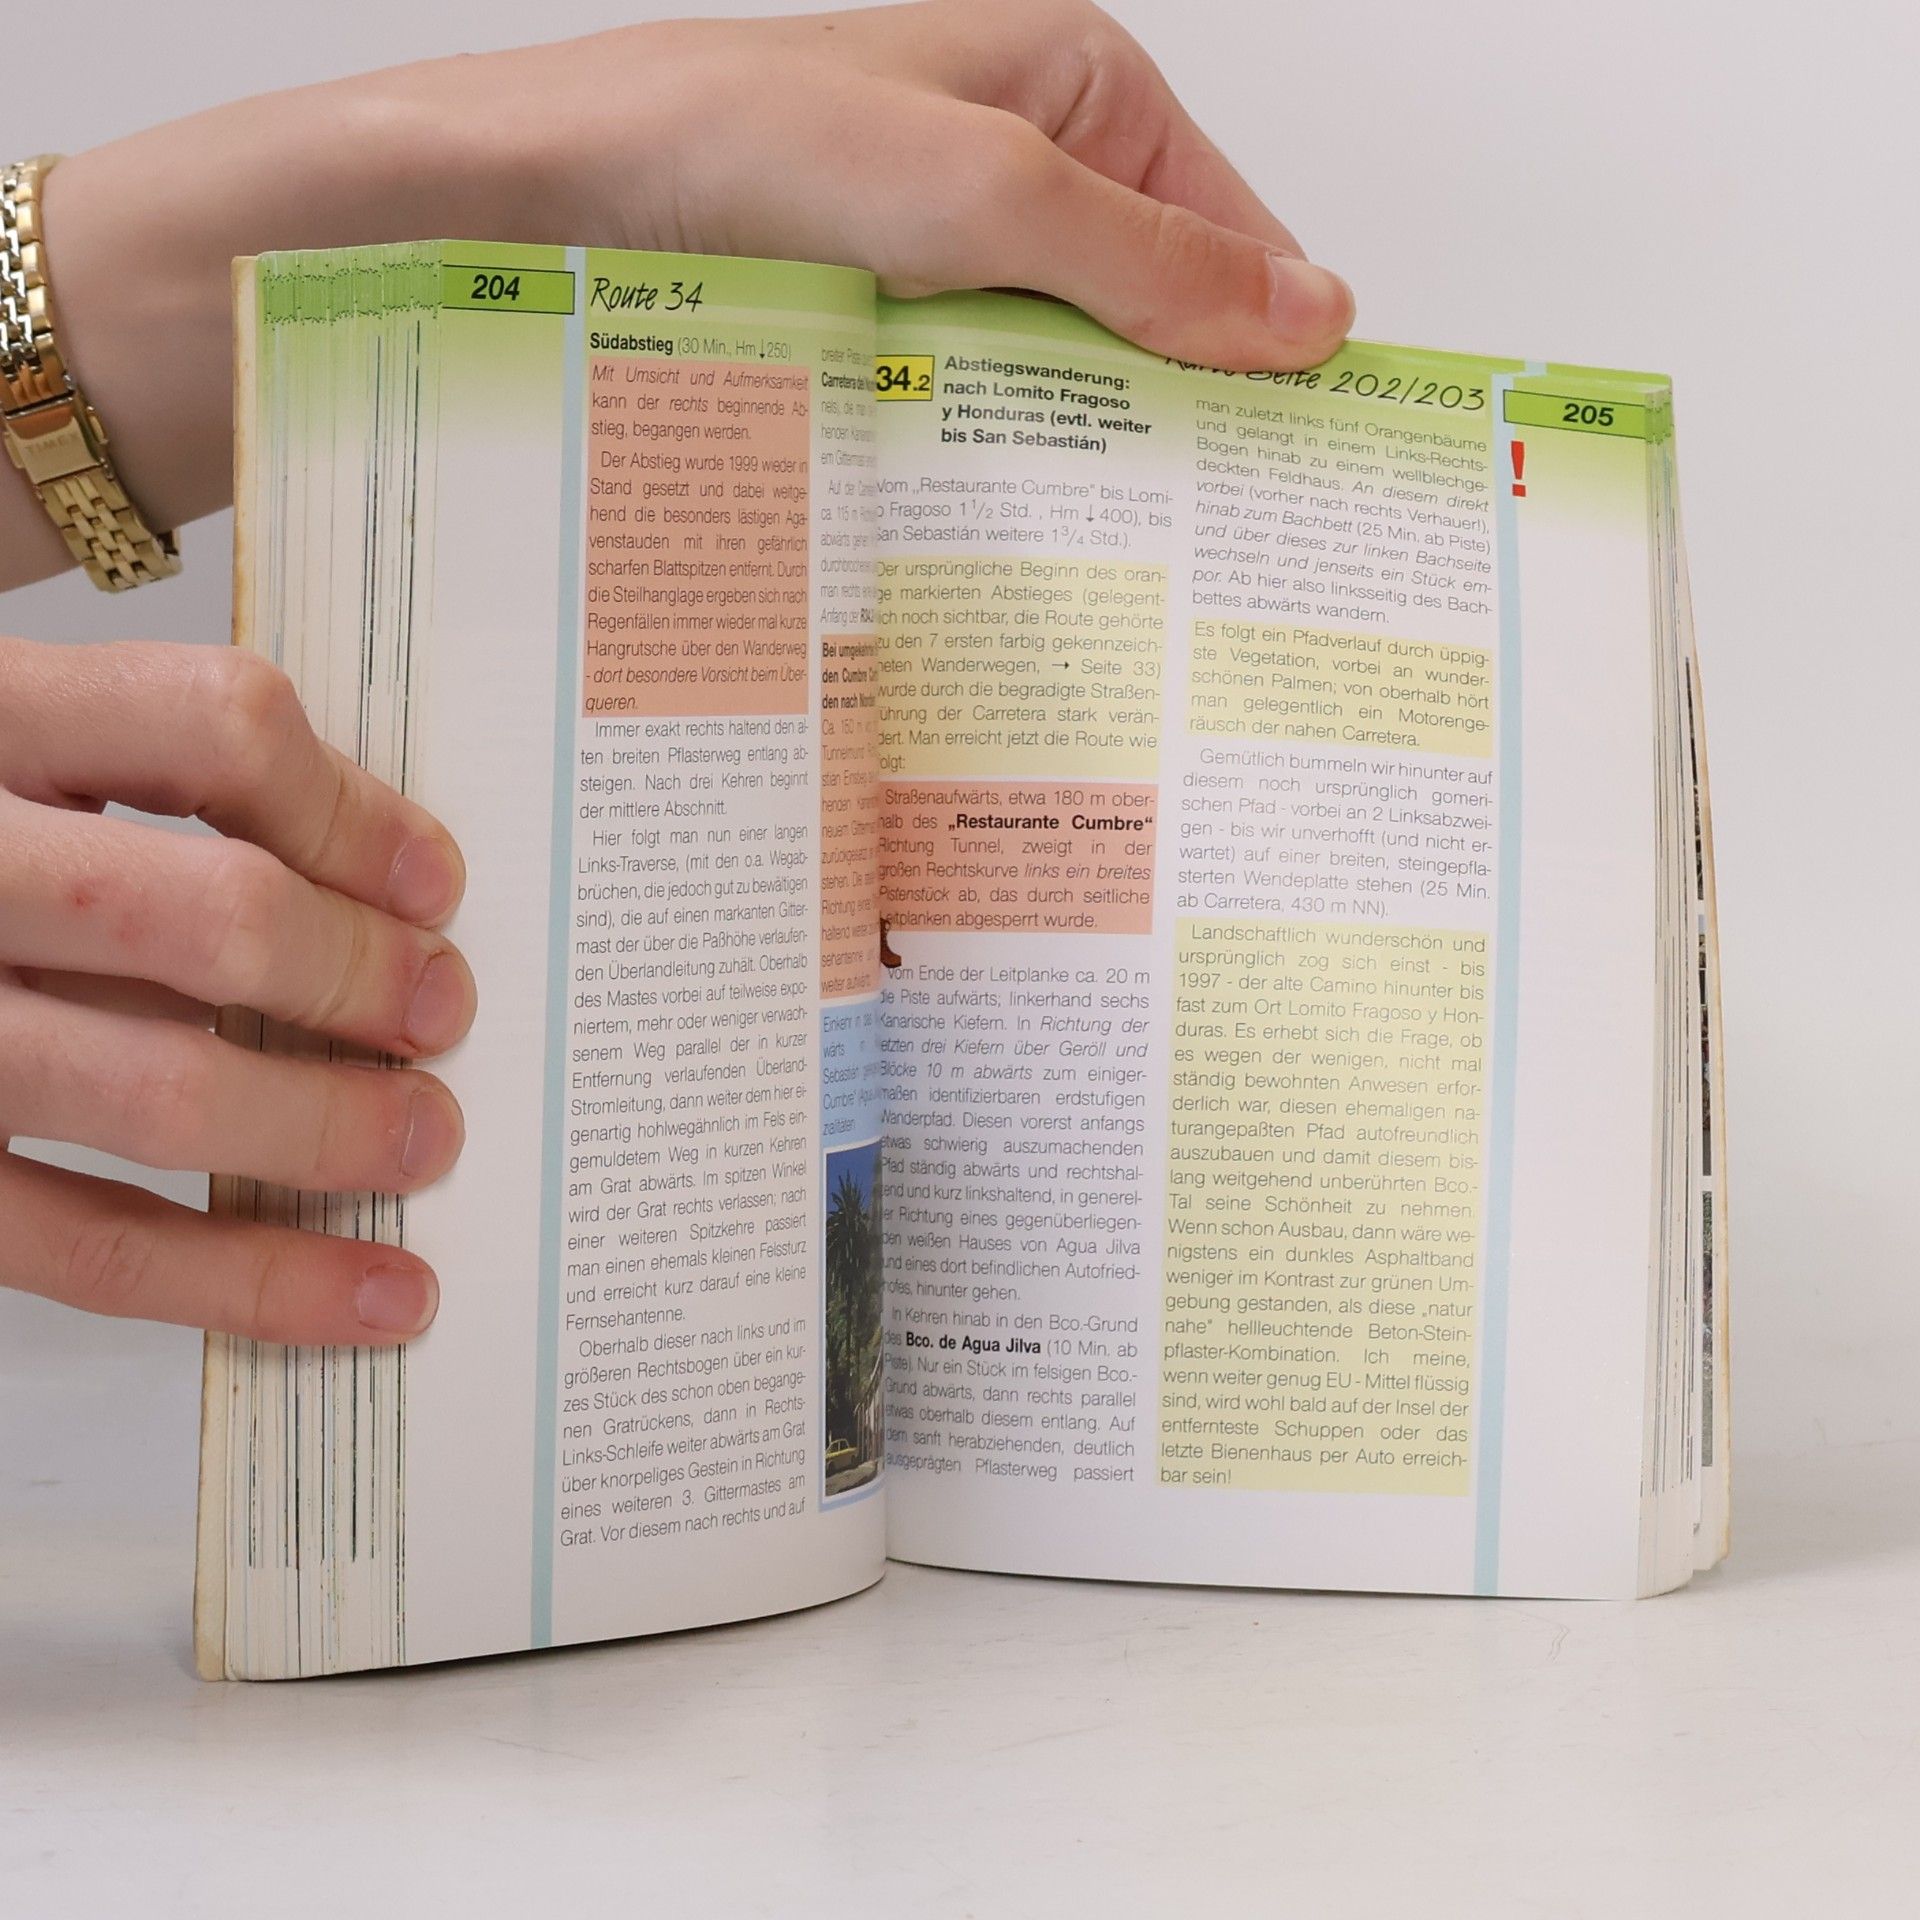 TIMEX
204
Route 34
Südabstieg (30 Min., Hm ↓ 250)
Mit Umsicht und Aufmerksamkeit
kann der rechts beginnende Ab-
stieg, begangen werden.
Der Abstieg wurde 1999 wieder in
Stand gesetzt und dabei weitge-
hend die besonders lästigen Aga-
venstauden mit ihren gefährlich
scharfen Blattspitzen entfernt. Durch
die Steilhanglage ergeben sich nach
Regenfällen immer wieder mal kurze
Hangrutsche über den Wanderweg
- dort besondere Vorsicht beim Über-
queren.
Immer exakt rechts haltend den al-
ten breiten Pflasterweg entlang ab-
steigen. Nach drei Kehren beginnt
der mittlere Abschnitt.
Hier folgt man nun einer langen
Links-Traverse, (mit den o.a. Wegab-
brüchen, die jedoch gut zu bewältigen
sind), die auf einen markanten Gitter-
mast der über die Paßhöhe verlaufen-
den Überlandleitung zuhält. Oberhalb
des Mastes vorbei auf teilweise expo-
niertem, mehr oder weniger verwach-
senem Weg parallel der in kurzer
Entfernung verlaufenden Überland-
Stromleitung, dann weiter dem hier ei-
genartig hohlwegähnlich im Fels ein-
gemuldetem Weg in kurzen Kehren
am Grat abwärts. Im spitzen Winkel
wird der Grat rechts verlassen; nach
einer weiteren Spitzkehre passiert
man einen ehemals kleinen Felssturz
und erreicht kurz darauf eine kleine
Fernsehantenne.
Oberhalb dieser nach links und im
größeren Rechtsbogen über ein kur-
zes Stück des schon oben begange-
nen Gratrückens, dann in Rechts-
Links-Schleife weiter abwärts am Grat
über knorpeliges Gestein in Richtung
eines weiteren 3. Gittermastes am
Grat. Vor diesem nach rechts und auf
breiter Piste
Carretera de
henden
ca. 115 m
abwärts
man rechts
Anfang der
Bei umgekehrter
den Cumbre
den nach
Ca. 150 m
Richtung
weiter aufwärts
Einkehr in
wärts
Sebastián
Cumbre
zialitäten
34.2
Abstiegswanderung:
nach Lomito Fragoso
y Honduras (evtl. weiter
bis San Sebastián)
Vom „Restaurante Cumbre" bis Lomi-
Fragoso 1 1/2 Std. , Hm ↓ 400), bis
San Sebastián weitere 1 3/4 Std.).
Der ursprüngliche Beginn des oran-
ge markierten Abstieges (gelegent-
lich noch sichtbar, die Route gehörte
zu den 7 ersten farbig gekennzeich-
neten Wanderwegen, → Seite 33)
wurde durch die begradigte Straßen-
führung der Carretera stark verän-
dert. Man erreicht jetzt die Route wie
folgt:
Straßenaufwärts, etwa 180 m ober-
halb des „Restaurante Cumbre"
Richtung Tunnel, zweigt in der
großen Rechtskurve links ein breites
Pistenstück ab, das durch seitliche
Leitplanken abgesperrt wurde.
Vom Ende der Leitplanke ca. 20 m
die Piste aufwärts; linkerhand sechs
Kanarische Kiefern. In Richtung der
letzten drei Kiefern über Geröll und
Blöcke 10 m abwärts zum einiger-
maßen identifizierbaren erdstufigen
Wanderpfad. Diesen vorerst anfangs
etwas schwierig auszumachenden
Pfad ständig abwärts und rechtshal-
tend und kurz linkshaltend, in generel-
ler Richtung eines gegenüberliegen-
den weißen Hauses von Agua Jilva
und eines dort befindlichen Autofried-
hofes, hinunter gehen.
In Kehren hinab in den Bco.-Grund
des Bco. de Agua Jilva (10 Min. ab
Piste). Nur ein Stück im felsigen Bco.-
Grund abwärts, dann rechts parallel
etwas oberhalb diesem entlang. Auf
dem sanft herabziehenden, deutlich
ausgeprägten Pflasterweg passiert
Seite 202/203
205
!
man zuletzt links fünf Orangenbäume
und gelangt in einem Links-Rechts-
Bogen hinab zu einem wellblechge-
deckten Feldhaus. An diesem direkt
vorbei (vorher nach rechts Verhauer!),
hinab zum Bachbett (25 Min. ab Piste)
und über dieses zur linken Bachseite
wechseln und jenseits ein Stück em-
por. Ab hier also linksseitig des Bach-
bettes abwärts wandern.
Es folgt ein Pfadverlauf durch üppig-
ste Vegetation, vorbei an wunder-
schönen Palmen; von oberhalb hört
man gelegentlich ein Motorenge-
räusch der nahen Carretera.
Gemütlich bummeln wir hinunter auf
diesem noch ursprünglich gomeri-
schen Pfad - vorbei an 2 Linksabzwei-
gen - bis wir unverhofft (und nicht er-
wartet) auf einer breiten, steingepfla-
sterten Wendeplatte stehen (25 Min.
ab Carretera, 430 m NN).
Landschaftlich wunderschön und
ursprünglich zog sich einst - bis
1997 - der alte Camino hinunter bis
fast zum Ort Lomito Fragoso y Hon-
duras. Es erhebt sich die Frage, ob
es wegen der wenigen, nicht mal
ständig bewohnten Anwesen erfor-
derlich war, diesen ehemaligen na-
turangepaßten Pfad autofreundlich
auszubauen und damit diesem bis-
lang weitgehend unberührten Bco.-
Tal seine Schönheit zu nehmen.
Wenn schon Ausbau, dann wäre we-
nigstens ein dunkles Asphaltband
weniger im Kontrast zur grünen Um-
gebung gestanden, als diese „natur
nahe" hellleuchtende Beton-Stein-
pflaster-Kombination. Ich meine,
wenn weiter genug EU - Mittel flüssig
sind, wird wohl bald auf der Insel der
entfernteste Schuppen oder das
letzte Bienenhaus per Auto erreich-
bar sein!